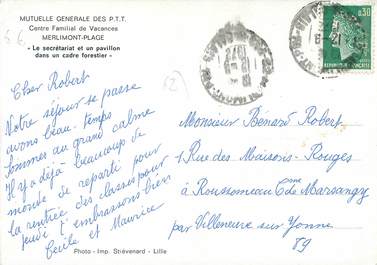 MUTUELLE GENERALE DES P.T.T.
Centre Familial de Vacances
MERLIMONT-PLAGE
- Le secrétariat et un pavillon
dans un cadre forestier -
Cher Robert
Notre séjour se passe
avons beau-temps
sommes au grand calme
Il y a déjà beaucoup de
monde de reparti pour
la rentrée des classes pour
jeudi t'embrassons bien
Cécile et Maurice
0,30
REPUBLIQUE FRANÇAISE
Monsieur Bénard Robert
1 Rue des Maisons-Rouges
à Rousson
par Villeneuve sur Yonne
89
Photo - Imp. Stiévenard - Lille